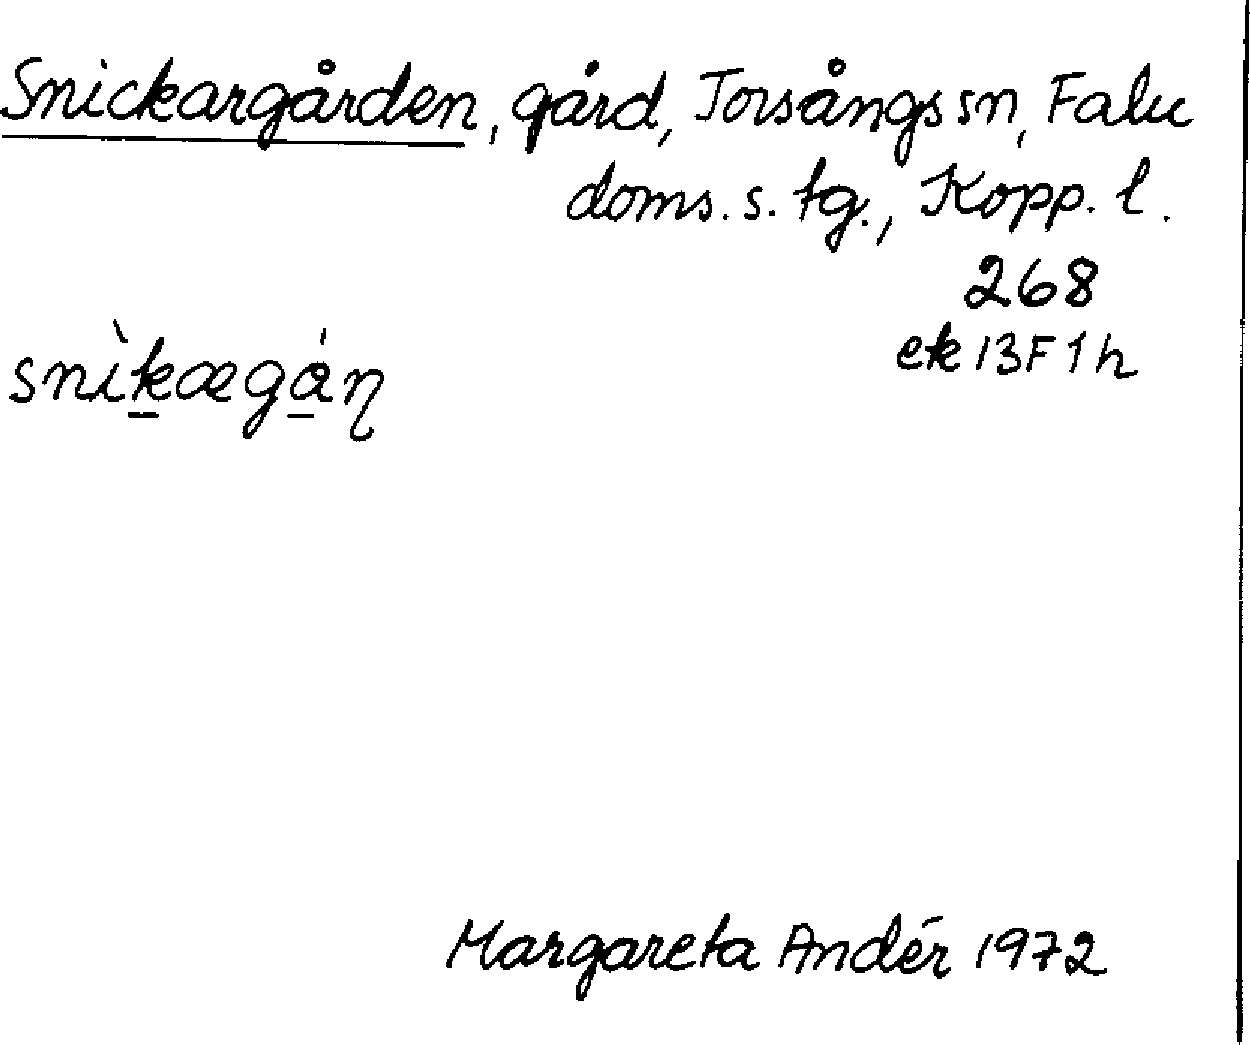 Snickargården, gård, Torsångs sn, Falu
doms. s. tg., Kopp. l.
268
ek 13F 1h
snìk̲ægǻ̲ɳ
Margareta Andér 1972